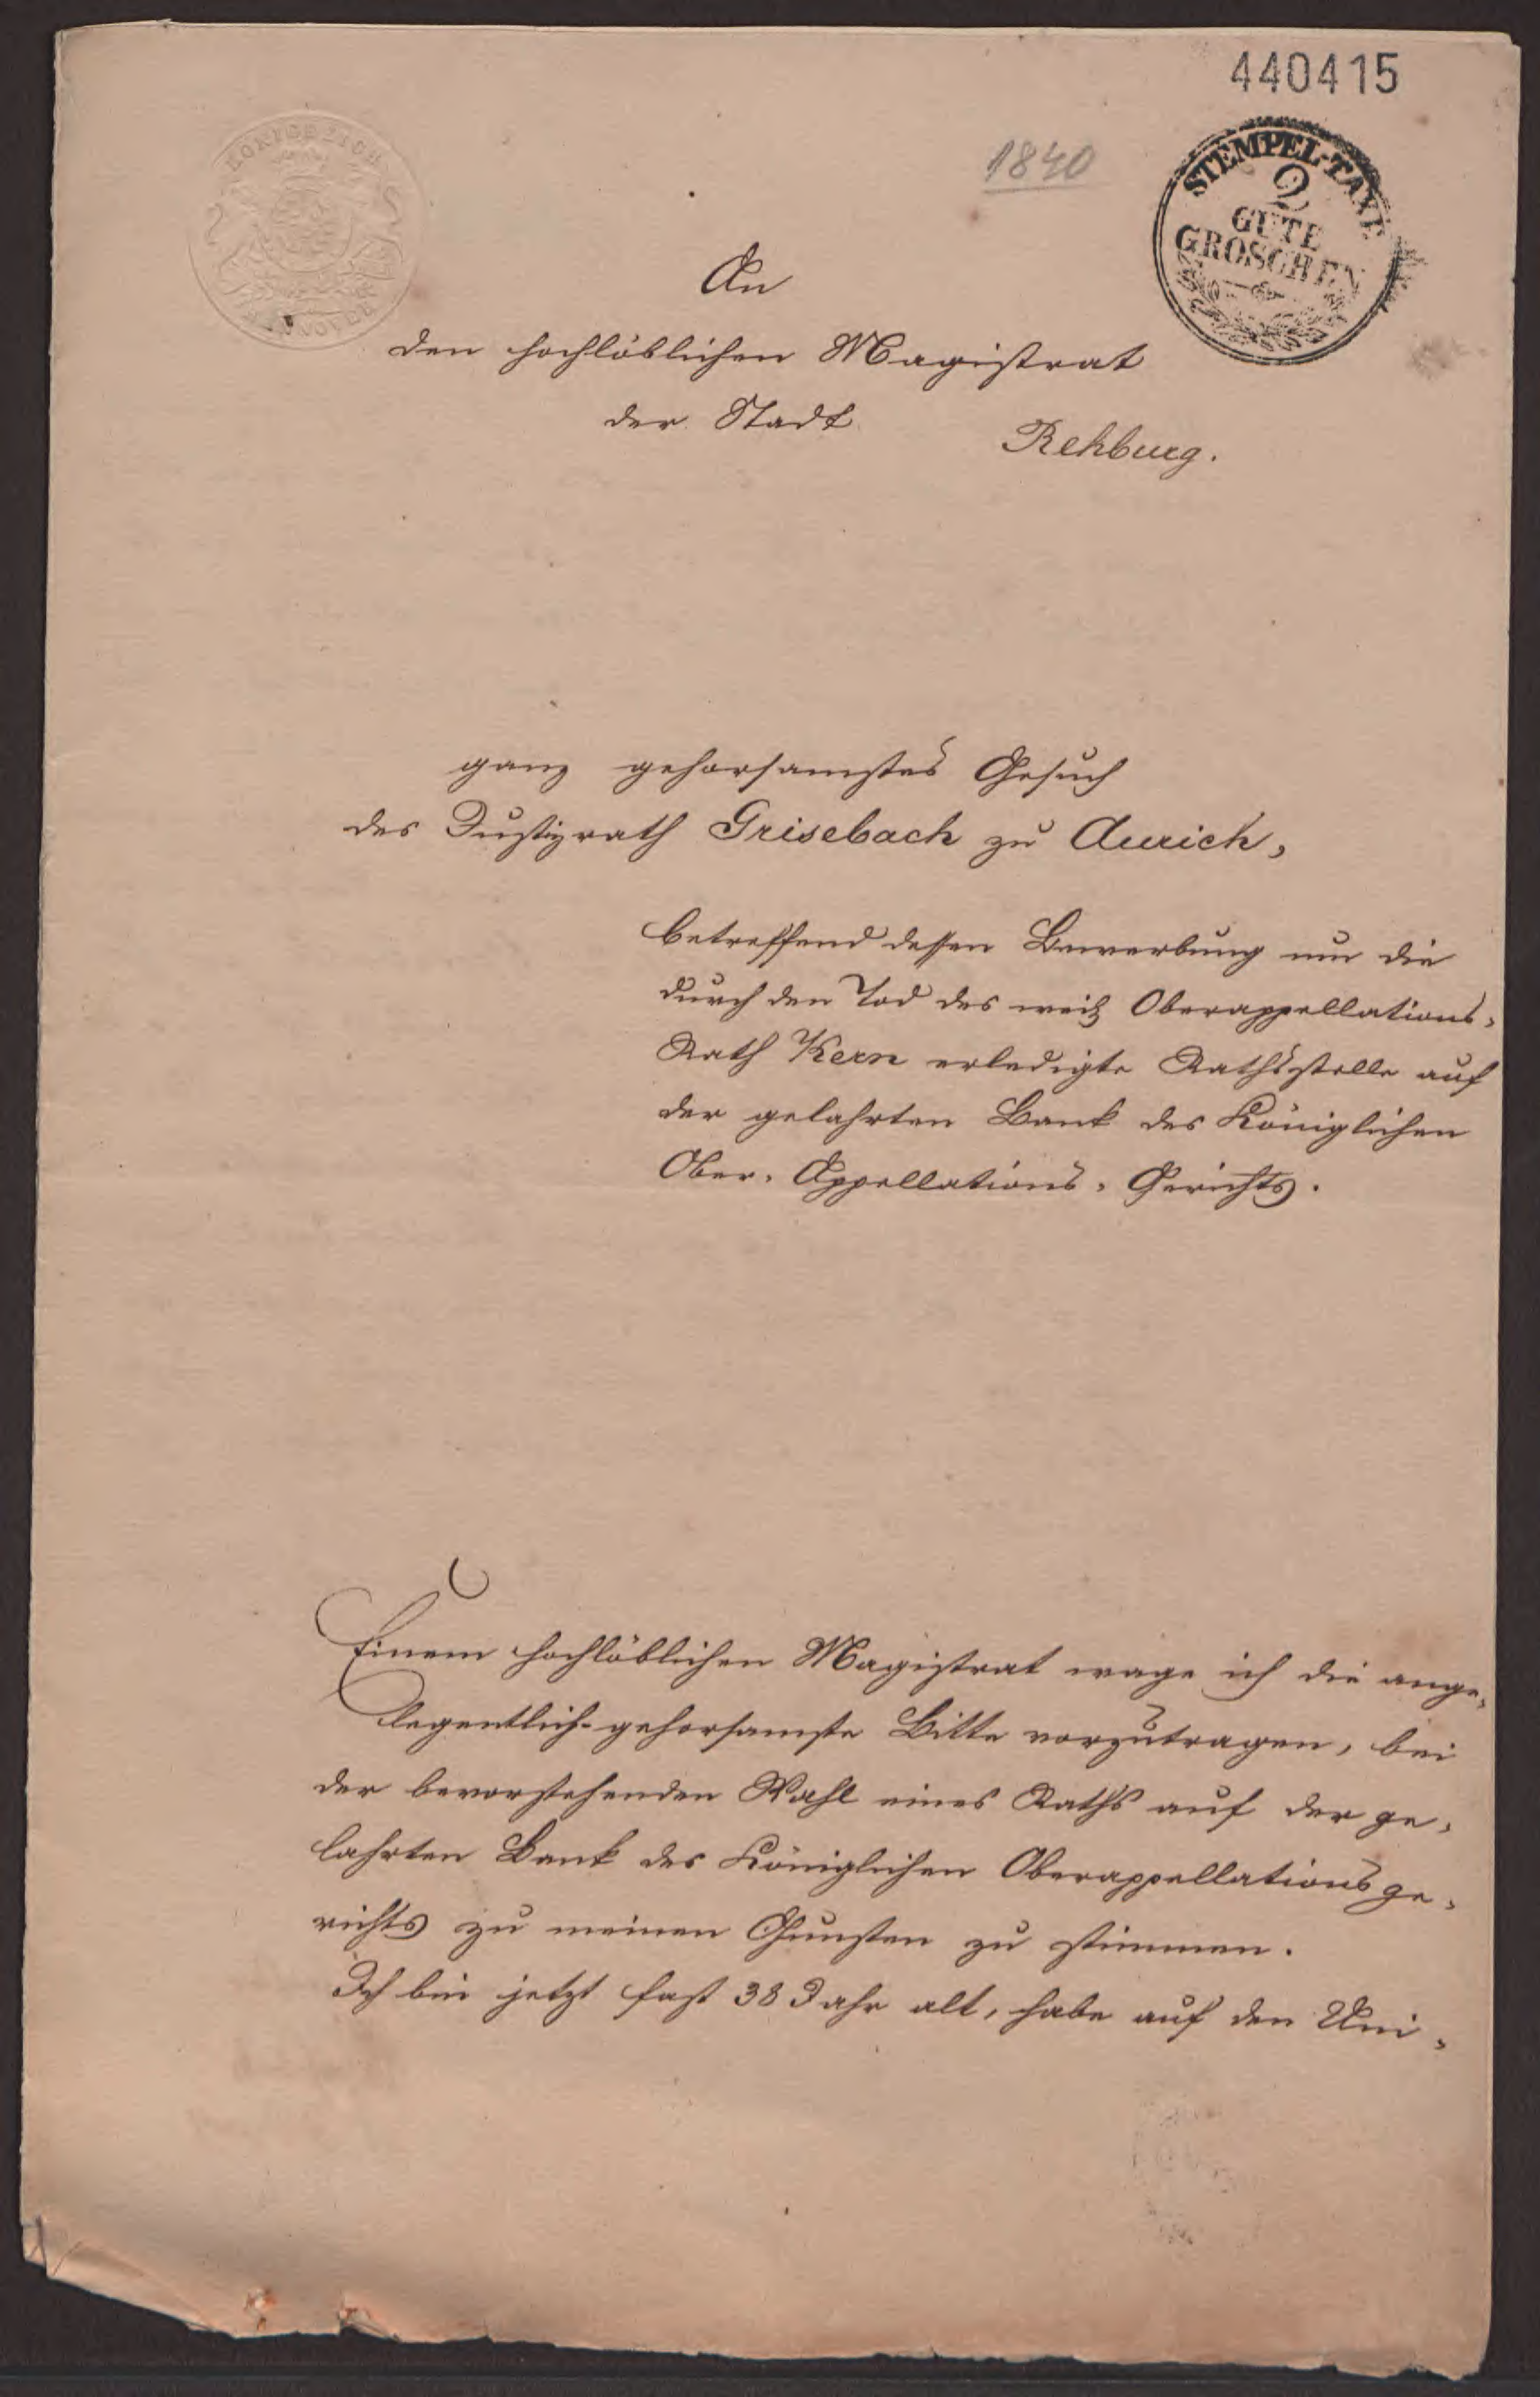 440415
1840
KÖNIGREICH
HANNOVER
STEMPEL-TAXE
2
GUTE
GROSCHEN
An
den hochlöblichen Magistrat
der Stadt
Rehburg.
ganz gehorsamstes Gesuch
des Justizrath Grisebach zu Aurich,
betreffend dessen Bewerbung um die
durch den Tod des weil Oberappellations-
Rath Kern erledigte Rathsstelle auf
der gelahrten Bank des Königlichen
Ober-Appellations-Gerichts.
Einem hochlöblichen Magistrat wage ich die ange-
legentlich-gehorsamste Bitte vorzutragen, bei
der bevorstehenden Wahl eines Raths auf der ge-
lahrten Bank des Königlichen Oberappellationsge-
richts zu meinen Gunsten zu stimmen.
Ich bin jetzt fast 38 Jahr alt, habe auf den Uni-